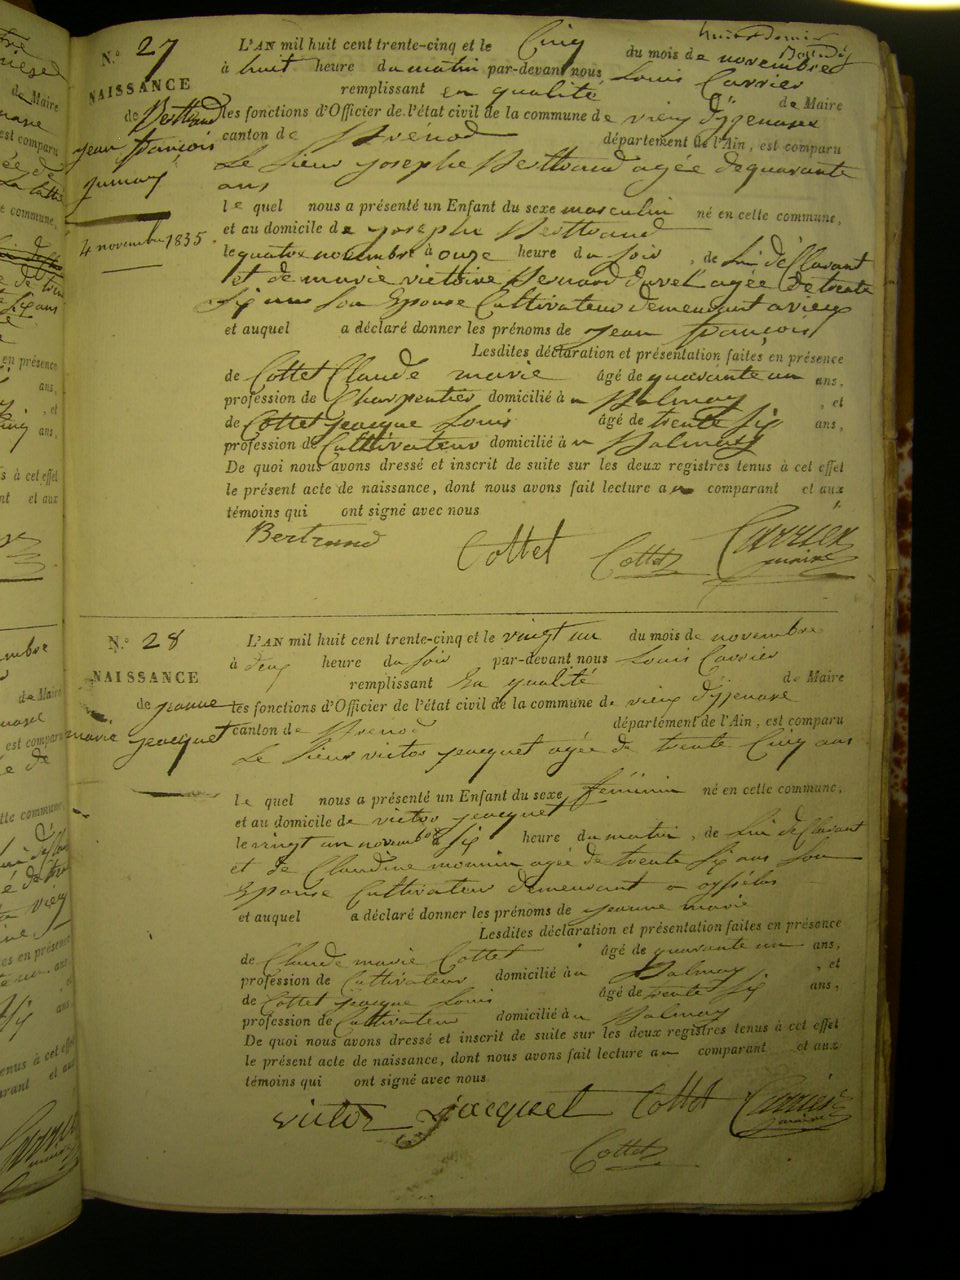 N.° 27
NAISSANCE
de Berttrand
jean françois
jumeau
4 novembre 1835.
L'AN mil huit cent trente-cinq et le Cinq du mois de novembre
à huit heure du matin par-devant nous Louis Carrier
remplissant en qualité de Maire
les fonctions d'Officier de l'état civil de la commune de vieux d'yzenave
canton de Brénod département de l'Ain, est comparu
Le sieur josephe Berttrand agée de quarante
ans
lequel nous a présenté un Enfant du sexe masculin né en cette commune,
et au domicile de josephe Berttrand
le quatre novembre à onze heure du soir, de lui déClarant
et de marie victoire Bernard duvel agée de trente
six ans son Epouse Cultivateur demeurant a vieux
et auquel a déclaré donner les prénoms de jean françois
Lesdites déclaration et présentation faites en présence
de Cottet Claude marie âgé de quarante un ans,
profession de Charpentier domicilié à Balmay, et
de Cottet jeacque Louis âgé de trente six ans,
profession de Cultivateur domicilié à Balmay
De quoi nous avons dressé et inscrit de suite sur les deux registres tenus à cet effet
le présent acte de naissance, dont nous avons fait lecture au comparant et aux
témoins qui ont signé avec nous
Bertrand Cottet Cottet Carrier
maire
N.° 28
NAISSANCE
de jeanne
marie jeacquet
L'AN mil huit cent trente-cinq et le vingt un du mois de novembre
à deux heure du soir par-devant nous Louis Carrier
remplissant en qualité de Maire
les fonctions d'Officier de l'état civil de la commune de vieux d'yzenave
canton de Brenod département de l'Ain, est comparu
Le sieur victor jeacquet agée de trente Cinq ans
lequel nous a présenté un Enfant du sexe féminin né en cette commune,
et au domicile de victor jeacquet
le vingt un novembre à six heure du matin, de lui déClarant
et de Claudine monnin agée de trente six ans son
Epouse Cultivateur demeurant a
et auquel a déclaré donner les prénoms de jeanne marie
Lesdites déclaration et présentation faites en présence
de Claude marie Cottet âgé de quarante un ans,
profession de Cultivateur domicilié à Balmay, et
de Cottet jeacque Louis âgé de trente six ans,
profession de Cultivateur domicilié à Balmay
De quoi nous avons dressé et inscrit de suite sur les deux registres tenus à cet effet
le présent acte de naissance, dont nous avons fait lecture au comparant et aux
témoins qui ont signé avec nous
victor jacquet Cottet Carrier
maire
Cottet